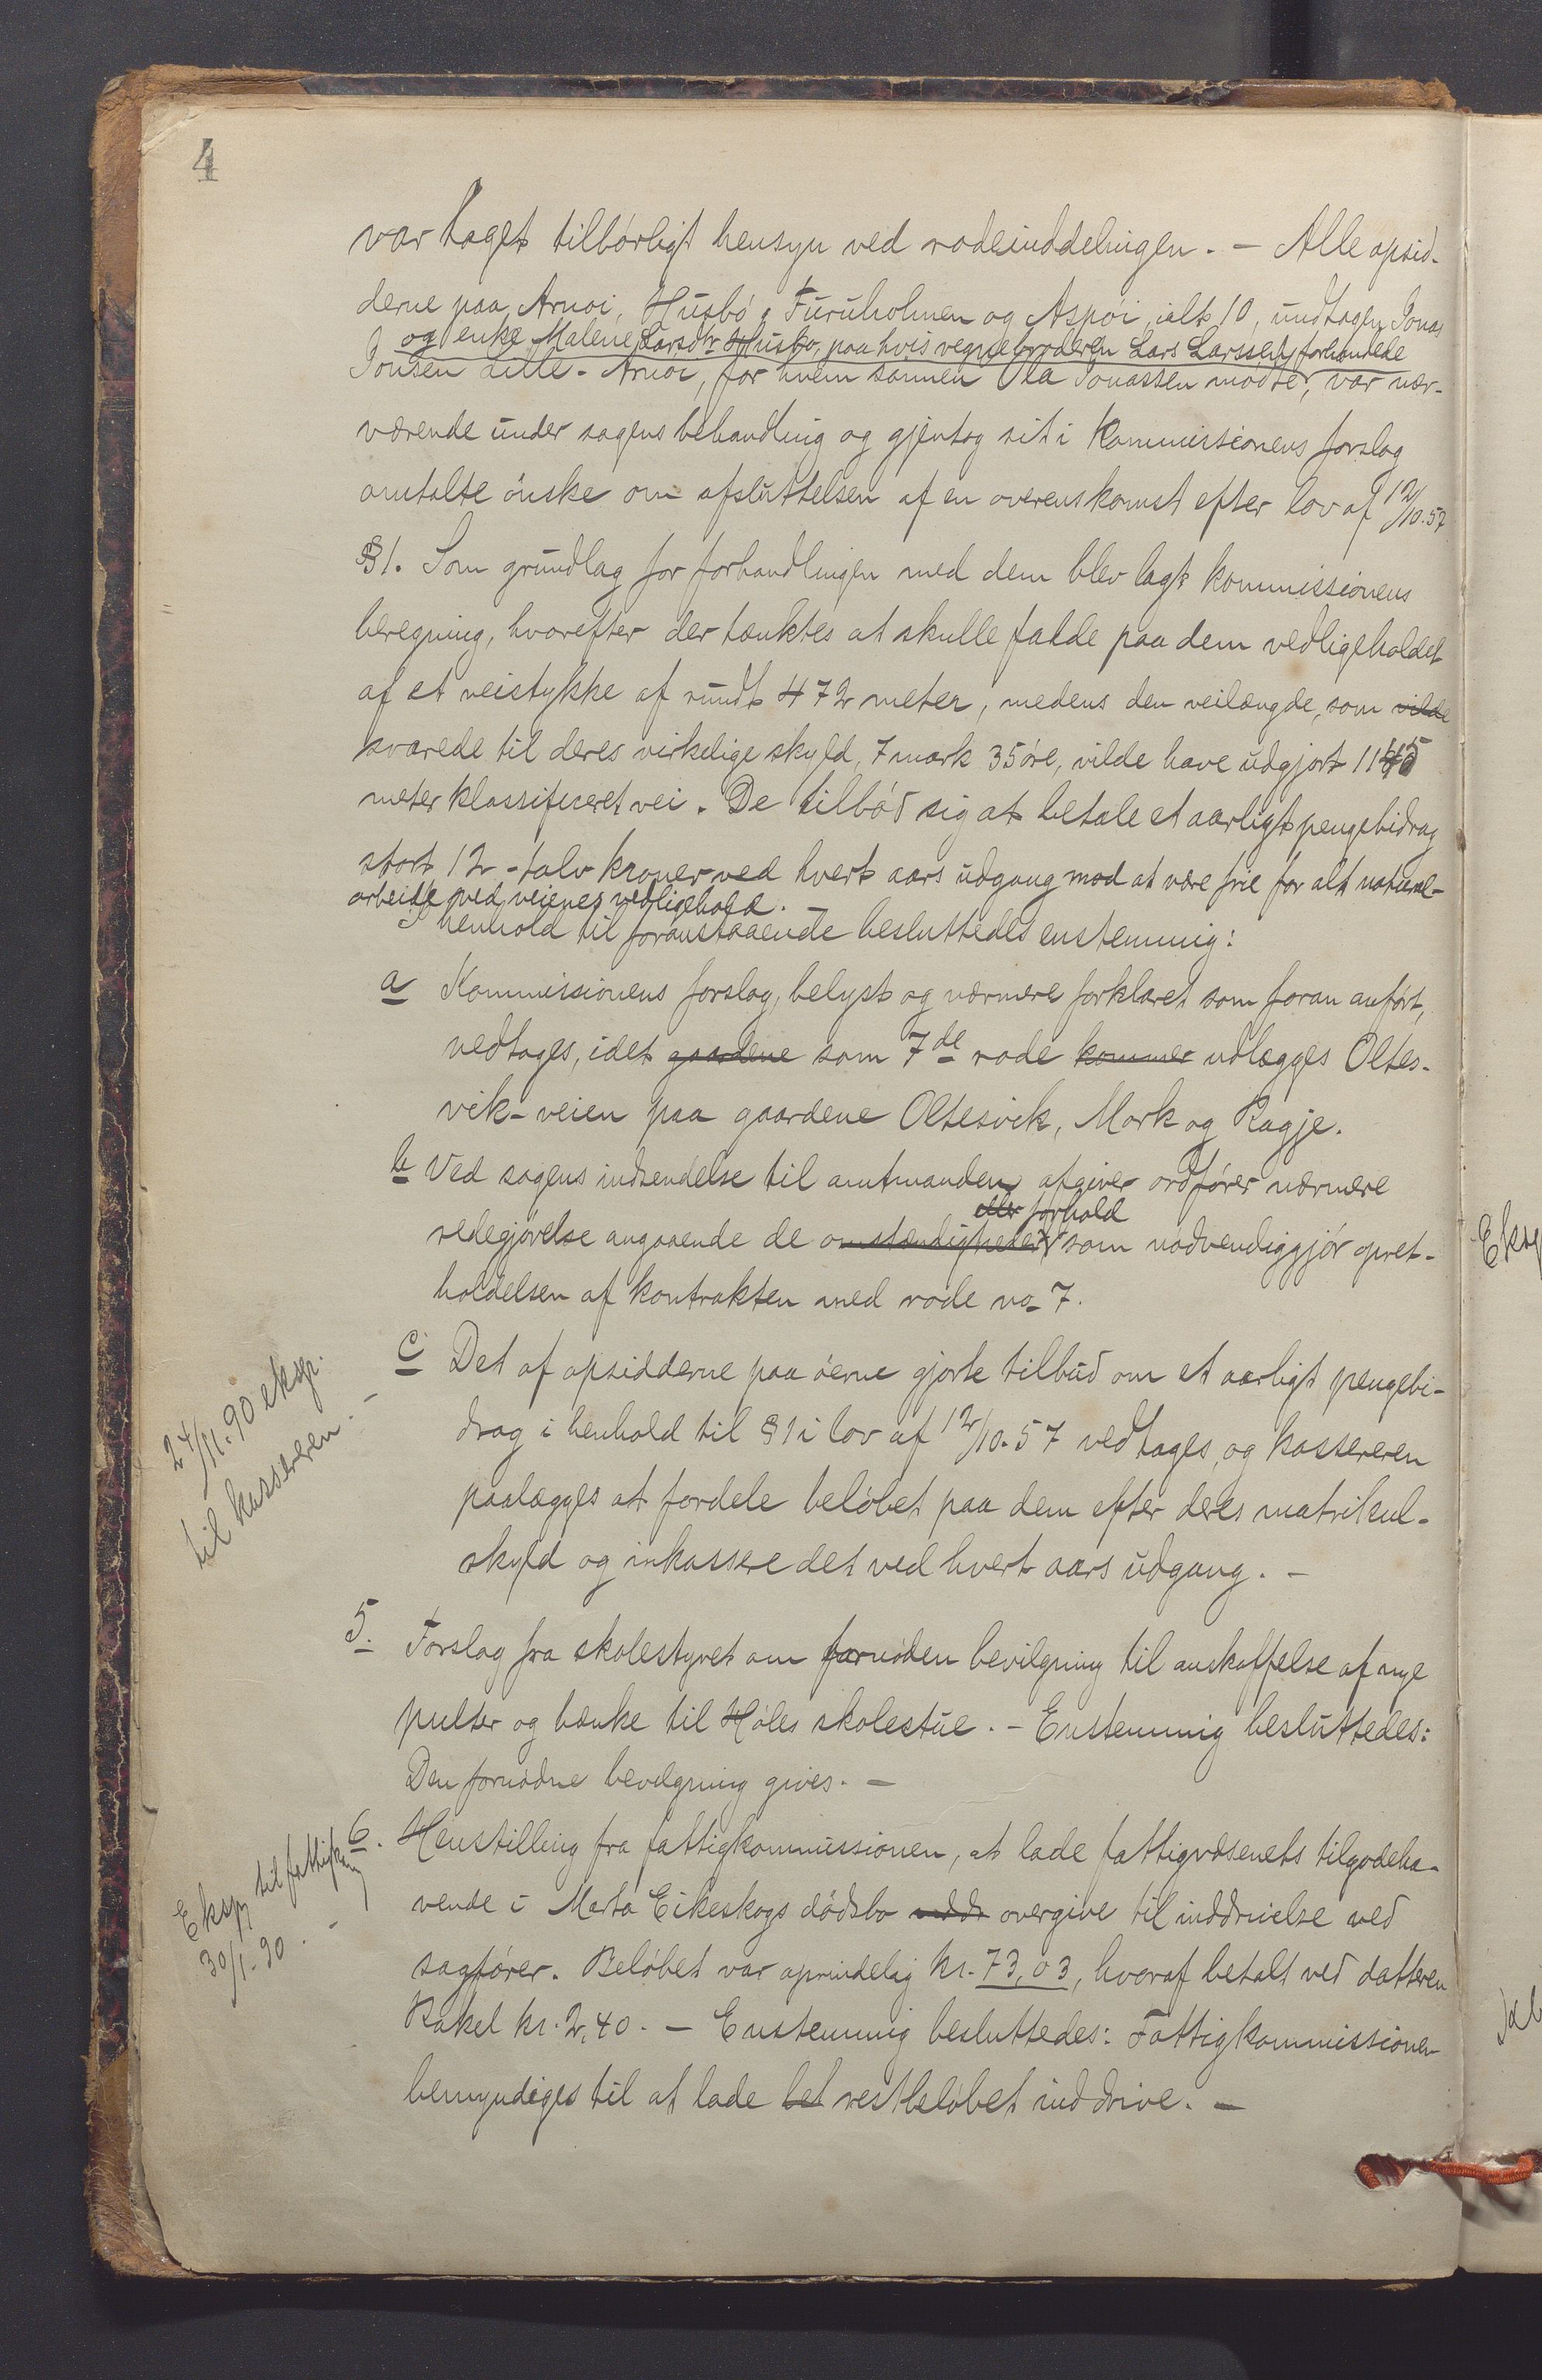 4
var taget tilbørligt hensyn ved rodeinddelingen. - Alle opsid-
derne paa Arnøi, Husbø, Furuholmen og Aspøi, ialt 10, undtagen Jonas
og enke Malene Larsdtr Husbø, paa hvis vegne broderen Lars Larssen forhandlede
Jonsen Lille-Arnøi, for hvem sønnen Ola Jonassen mødte, var nær-
værende under sagens behandling og gjentog sit i kommissionens forslag
omtalte ønske om afsluttelsen af en overenskomst efter lov af 12/10.57
§1. Som grundlag for forhandlingen med dem blev lagt kommissionens
beregning, hvorefter der tænktes at skulle falde paa dem vedligeholdet
af et veistykke af rundt 472 meter, medens den veilængde, som vilde
svarede til deres virkelige skyld, 7 mark 35 øre, vilde have udgjort
meter klassificeret vei. De tilbød sig at betale et aarligt pengebidrag
stort 12 - tolv kroner ved hvert aars udgang mod at være frie for alt natural-
arbeide ved veienes vedligehold. -
I henhold til foranstaaende besluttedes enstemmig:
a Kommissionens forslag, belyst og nærmere forklaret som foran anført,
vedtages, idet gaardene som 7de rode kommer udlægges Oltes-
vik-veien paa gaardene Oltesvik, Mork og Ragje.
b Ved sagens indsendelse til amtmanden afgiver ordfører nærmere
eller forhold
redegjørelse angaaende de omstændigheder som nødvendiggjør opret-
holdelsen af kontrakten med rode no 7.
c Det af opsidderne paa øerne gjorte tilbud om et aarligt pengebi-
drag i henhold til §1 i lov af 12/10.57 vedtages, og kassereren
paalægges at fordele beløbet paa dem efter deres matrikul-
skyld og inkassere det ved hvert aars udgang. -
24/11.90 eksp.
til kassereren. -
5. Forslag fra skolestyret om fornøden bevilgning til anskaffelse af nye
pulter og bænke til Høles skolestue. - Enstemmig besluttedes:
Den fornødne bevilgning gives. -
6. Henstilling fra fattigkommissionen, at lade fattigvæsenets tilgodeha-
vende i Marta Eikeskogs dødsbo overgive til inddrivelse ved
sagfører. Beløbet var oprindelig kr. 73,03, hvoraf betalt ved datteren
Rakel kr. 2,40. - Enstemmig besluttedes: Fattigkommissionen
bemyndiges til at lade bel restbeløbet inddrive. -
Eksp til fattigkom
30/1-90. -
Eksp